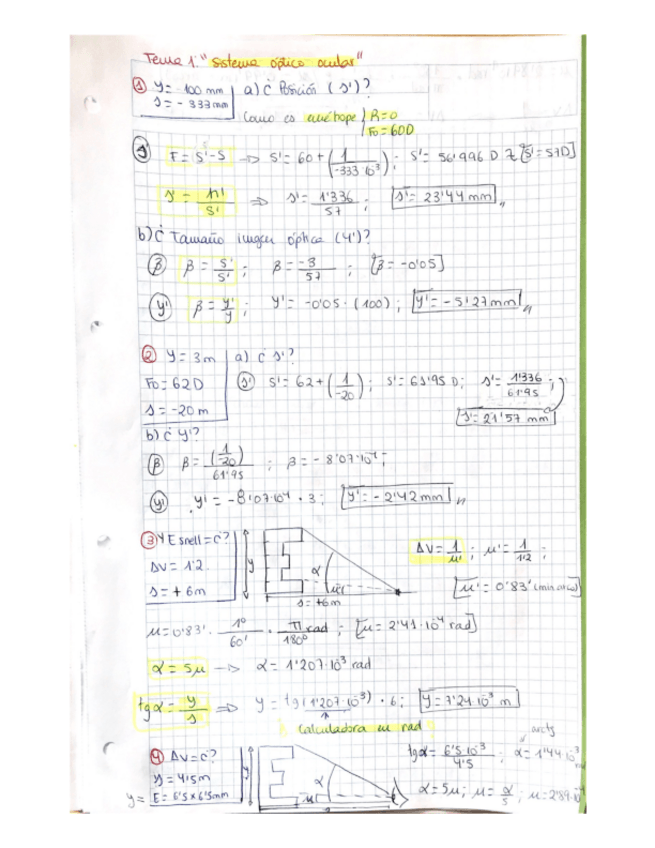 Tema 1: "Sistema óptico ocular"
① y = 100 mm
s = - 333 mm
a) ¿ Posición (s')?
Como es emétrope R=0
Fo=60D
s' F = S'-S → S' = 60 + (1/-333·10³); S' = 56'996 D [S' = 57D]
s' = n'/S' ⇒ s' = 1'336/57; s' = 23'44 mm
b) ¿ Tamaño imagen óptica (y')?
β β = S/S'; β = -3/57; [β = -0'05]
y' β = y'/y; y' = -0'05 · (100); y' = -5'27 mm
② y = 3m
Fo = 62D
s = -20 m
a) ¿ s'?
s' S' = 62 + (1/-20); S' = 61'95 D; s' = 1'336/61'95;
s' = 21'57 mm
b) ¿ y'?
β β = (1/-20)/61'95; β = -8'07·10⁻⁴;
y' y' = -8'07·10⁻⁴ · 3; y' = -2'42 mm
③ y E snell = ¿?
ΔV = 1'2
s = +6m
y
α
s = +6m
ΔV = 1/μ'; μ' = 1/1'2;
[μ' = 0'83' (min arco)]
μ = 0'83' · 1º/60' · π rad/180º; [μ = 2'41·10⁻⁴ rad]
α = 5μ → α = 1'207·10³ rad
tg α = y/s ⇒ y = tg (1'207·10³) · 6; y = 7'24·10³ m
Calculadora en rad
④ ΔV = ¿?
s = 4'5m
y = E = 6'5 x 6'5mm
y
α
μ
arctg
tg α = 6'5·10³/4'5; α = 1'44·10³ rad
α = 5μ; μ = α/5; μ = 2'89·10⁻⁴